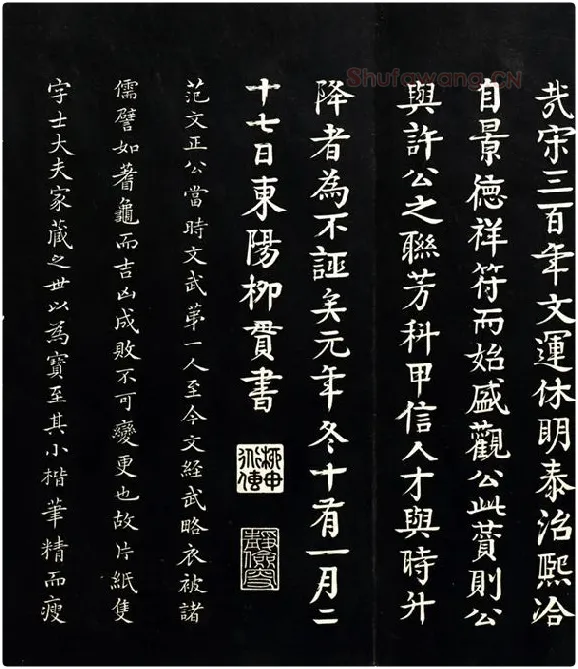 Shufawang.CN
哉宋三百年文運休明泰治熙洽
自景德祥符而始盛觀公此贊則公
與許公之聯芳科甲信人才與時升
降者為不誣矣元年冬十有一月二
十七日東陽柳貫書
范文正公當時文武第一人至今文經武略衣被諸
儒譬如蓍龜而吉凶成敗不可變更也故片紙隻
字士大夫家藏之世以為寶至其小楷筆精而瘦